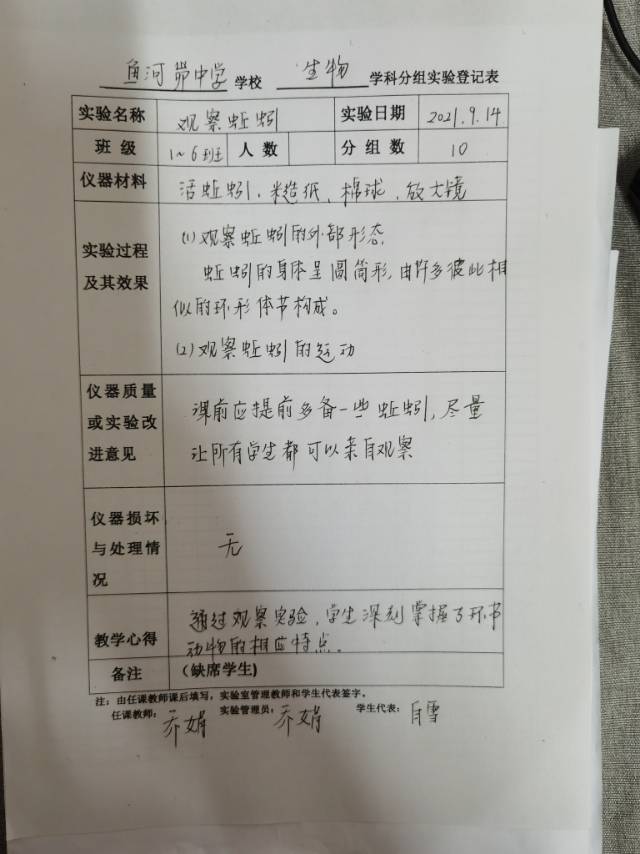 鱼河峁中学 学校 生物 学科分组实验登记表
实验名称 观察蚯蚓 实验日期 2021.9.14
班级 1~6班 人数 分组数 10
仪器材料 活蚯蚓、糙纸、棉球、放大镜
实验过程及其效果
(1)观察蚯蚓的外部形态
蚯蚓的身体呈圆筒形,由许多彼此相
似的环形体节构成。
(2)观察蚯蚓的运动
仪器质量或实验改进意见
课前应提前多备一些蚯蚓,尽量
让所有学生都可以亲自观察
仪器损坏与处理情况
无
教学心得
通过观察实验,学生深刻掌握了环节
动物的相应特点。
备注 (缺席学生)
注:由任课教师课后填写,实验室管理教师和学生代表签字。
任课教师: 乔娟 实验管理员: 乔娟 学生代表: 雪